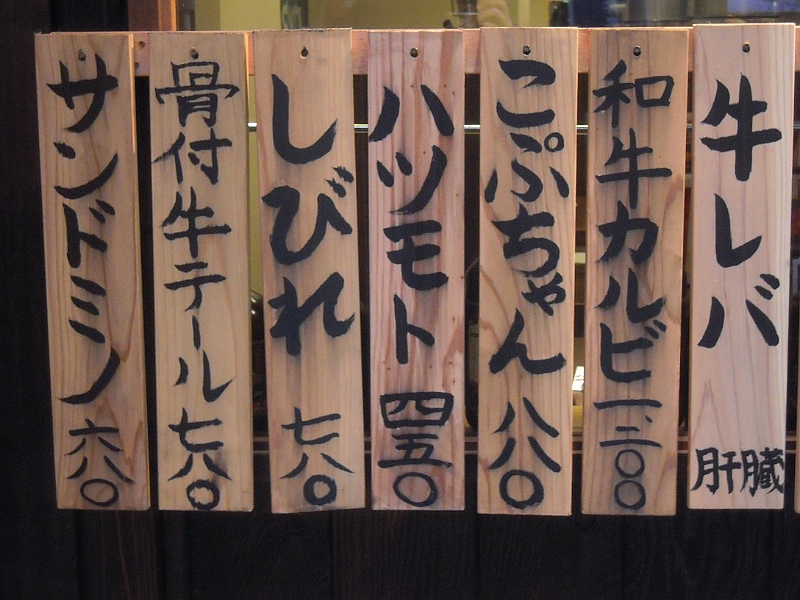 牛レバ 肝臓
和牛カルビ 一、二〇〇
こぷちゃん 八八〇
ハツモト 四五〇
しびれ 七八〇
骨付牛テール 七八〇
サンドミノ 六八〇